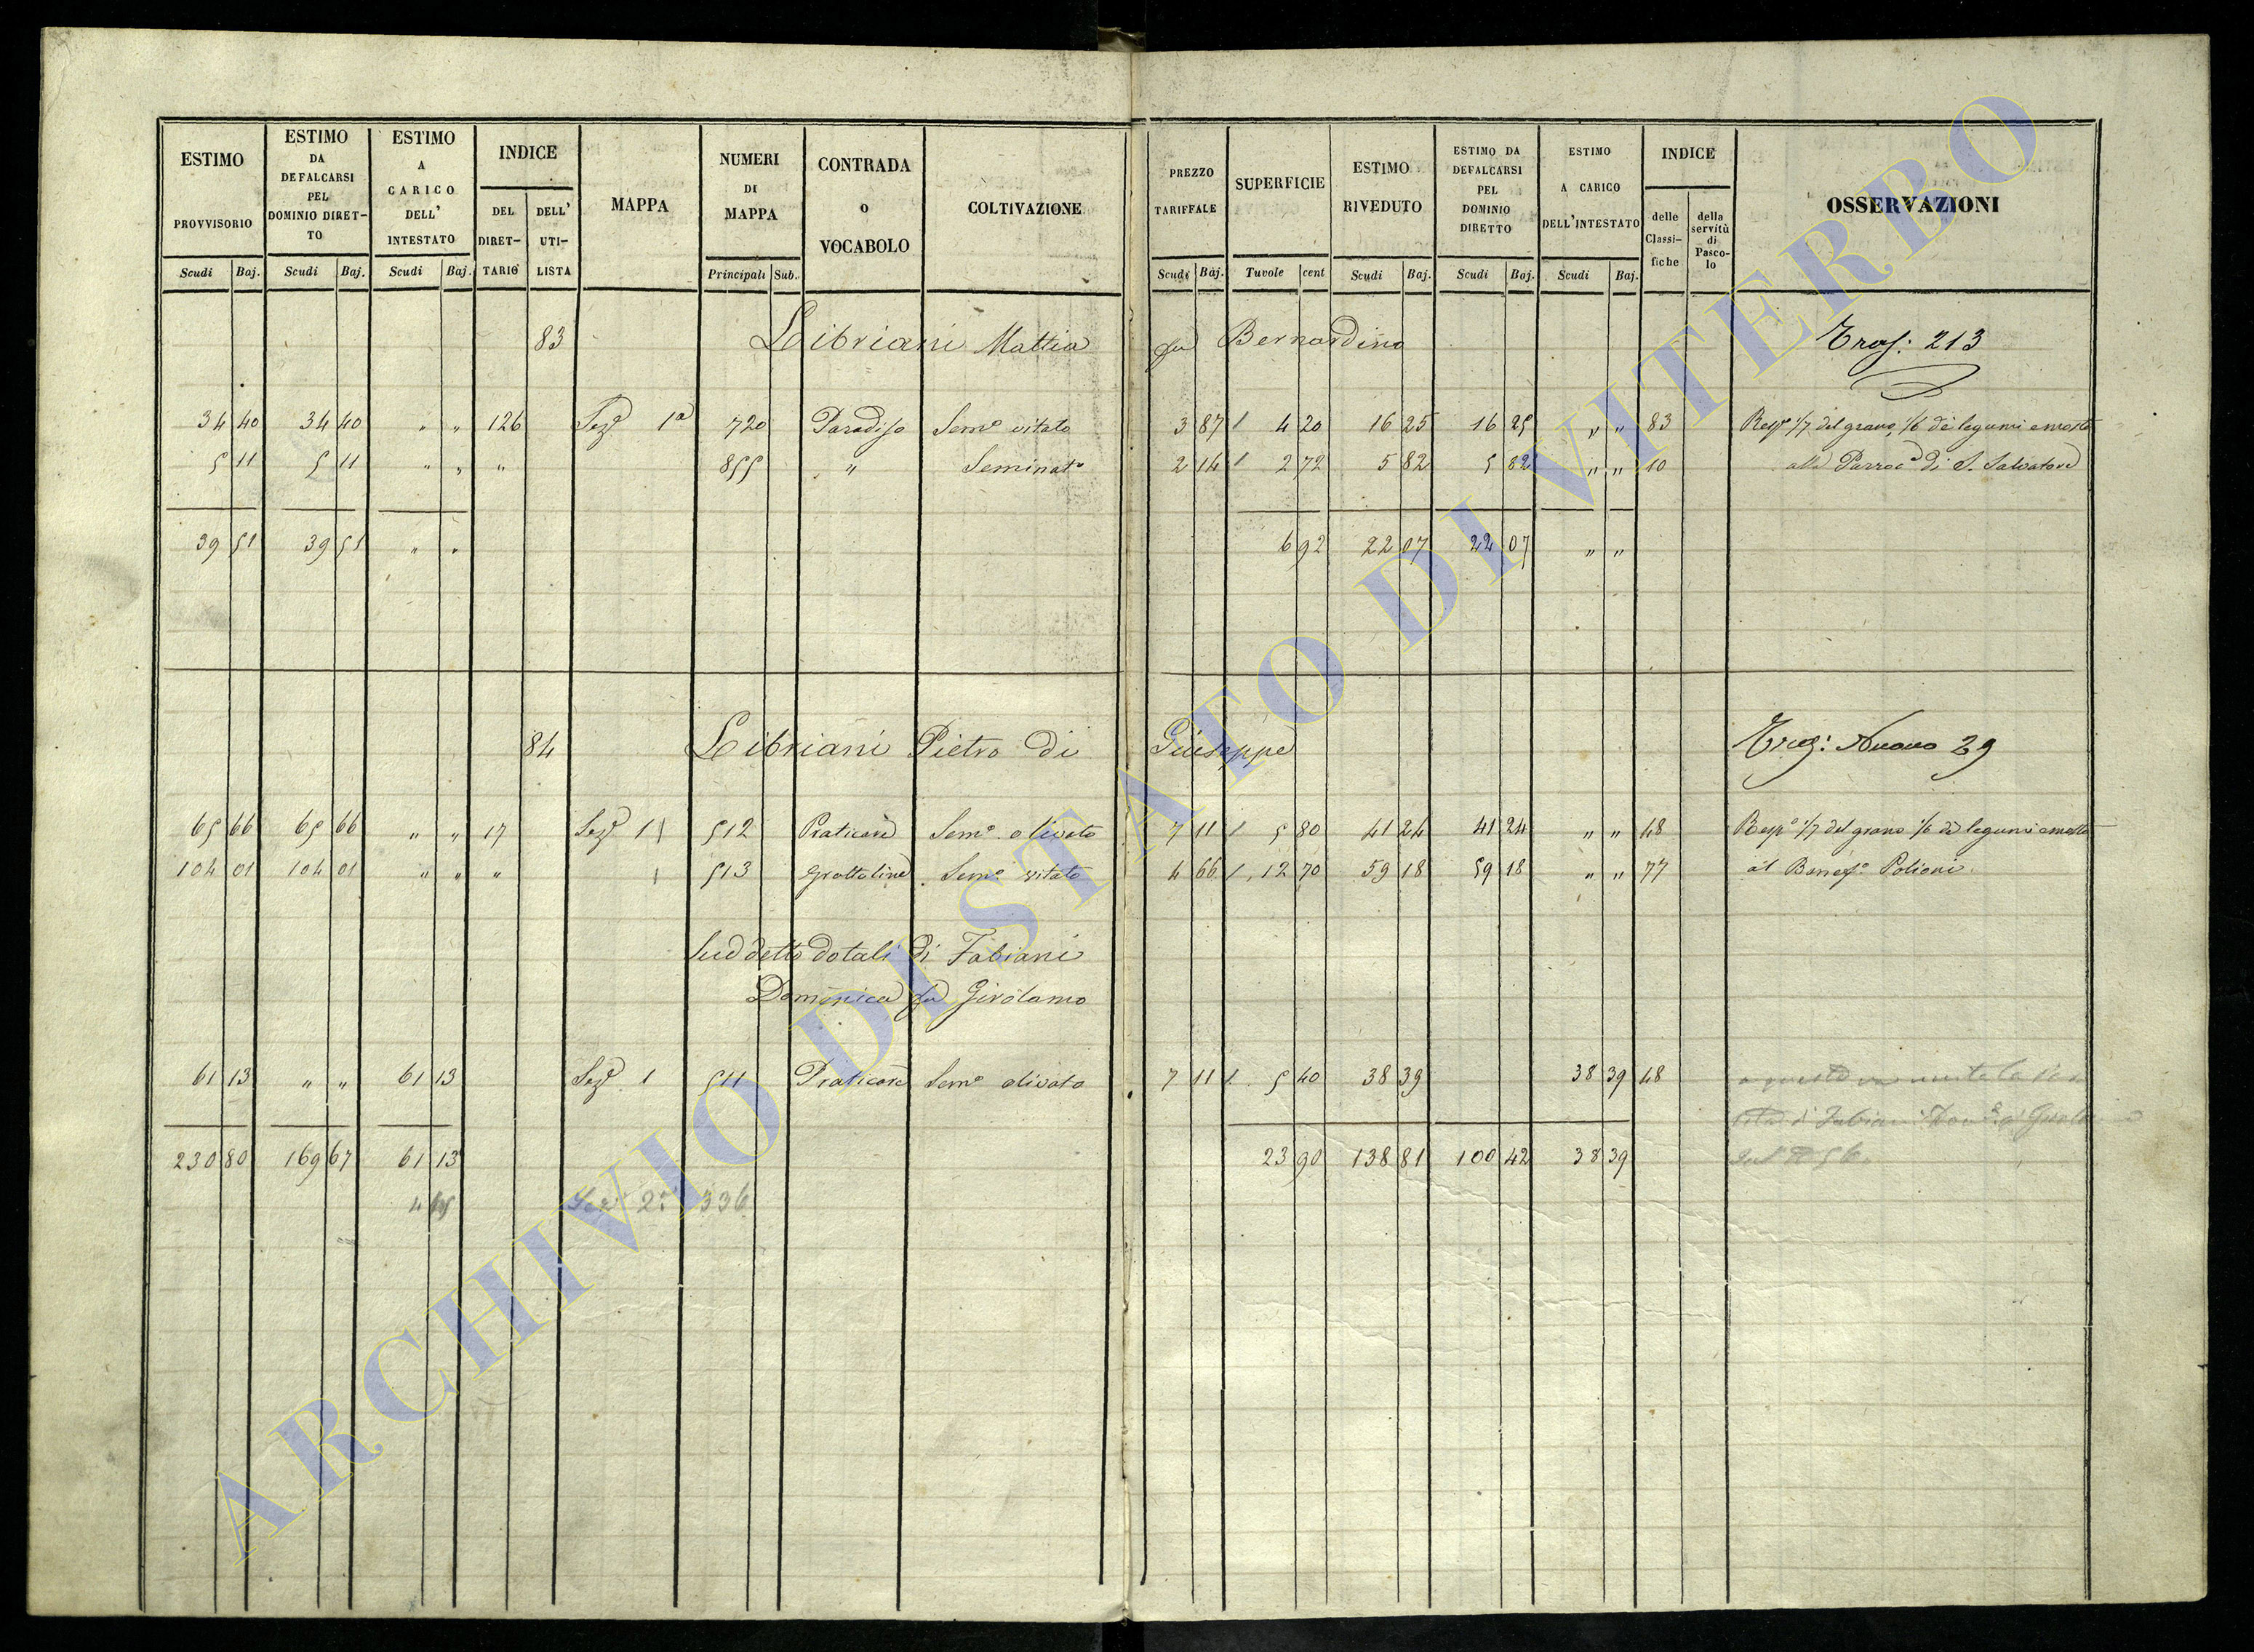 ESTIMO PROVVISORIO Scudi Baj.
ESTIMO DA DEFALCARSI PEL DOMINIO DIRETTO Scudi Baj.
ESTIMO A CARICO DELL' INTESTATO Scudi Baj.
INDICE DEL DIRETTARIO DELL' UTILISTA
MAPPA
NUMERI DI MAPPA Principali Sub.
CONTRADA O VOCABOLO
COLTIVAZIONE
PREZZO TARIFFALE Scudi Baj.
SUPERFICIE Tavole cent
ESTIMO RIVEDUTO Scudi Baj.
ESTIMO DA DEFALCARSI PEL DOMINIO DIRETTO Scudi Baj.
ESTIMO A CARICO DELL'INTESTATO Scudi Baj.
INDICE delle Classifiche della servitù di Pascolo
OSSERVAZIONI
83 Libriani Mattia fu Bernardino Tras: 213
34 40 34 40 " " 126 Sezᵉ 1ª 720 Paradiso Semº vitato 3 87 / 4 20 16 25 16 25 " " 83 Respº 1/7 del grano, 1/6 dei legumi e mosto
5 11 5 11 " " " 855 " Seminatº 2 14 / 2 72 5 82 5 82 " " 10 alla Parrocª di S. Salvatore
39 51 39 51 " " 6 92 22 07 22 07 " "
84 Libriani Pietro di Giuseppe Nuovo 29
65 66 65 66 " " 17 Sezᵉ 1 512 Praticare Semº olivato 7 11 / 5 80 41 24 41 24 " " 48 Respº 1/7 del grano 1/6 dei legumi e mosto
104 01 104 01 " " " 513 Grottoline Semº vitato 4 66 / 12 70 59 18 59 18 " " 77 al Benefº Polioni
Suddetto dotali di Fabiani
Domenica fu Girolamo
61 13 " " 61 13 Sezᵉ 1 511 Praticare Semº olivato 7 11 / 5 40 38 39 38 39 48
di Fabiani
230 80 169 67 61 13 23 90 138 81 100 42 38 39
Sezᵉ 2ª 336
ARCHIVIO DI STATO DI VITERBO